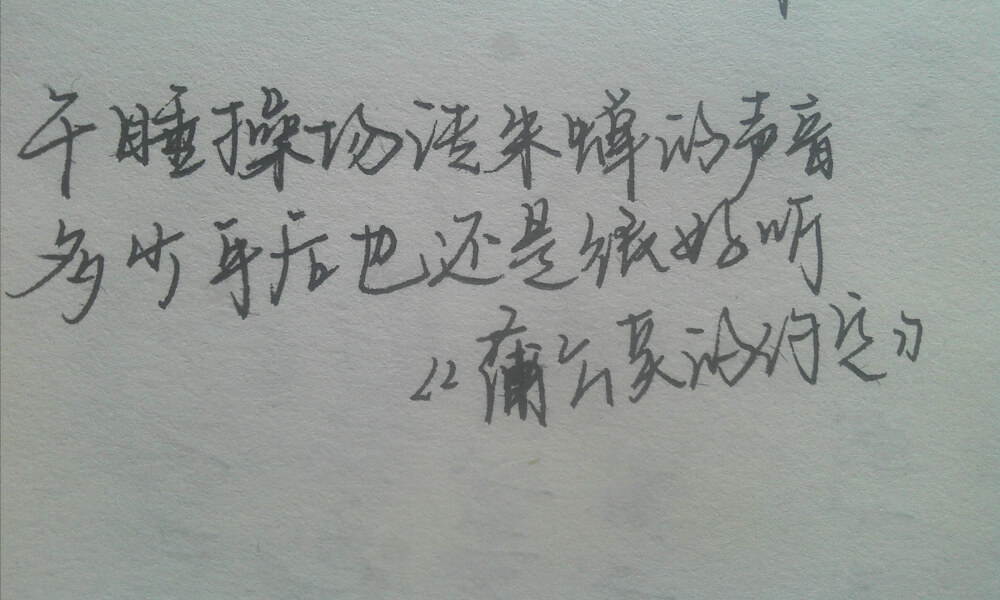 午睡操场传来蝉的声音
多少年后也还是很好听
《蒲公英的约定》